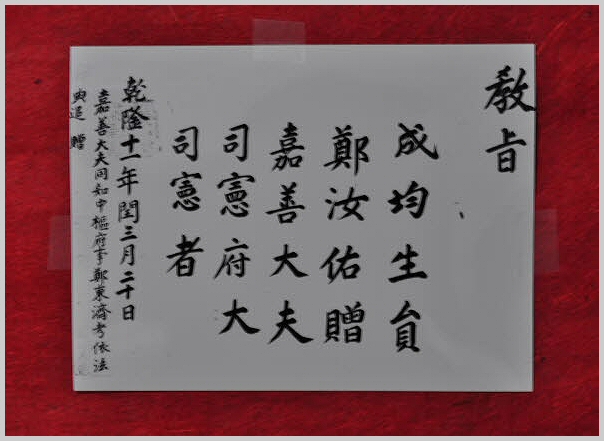 教旨
成均生員
鄭汝佑贈
嘉善大夫
司憲府大
司憲者
乾隆十一年閏三月二十日
嘉善大夫同知中樞府事鄭東濟考依法
典追贈